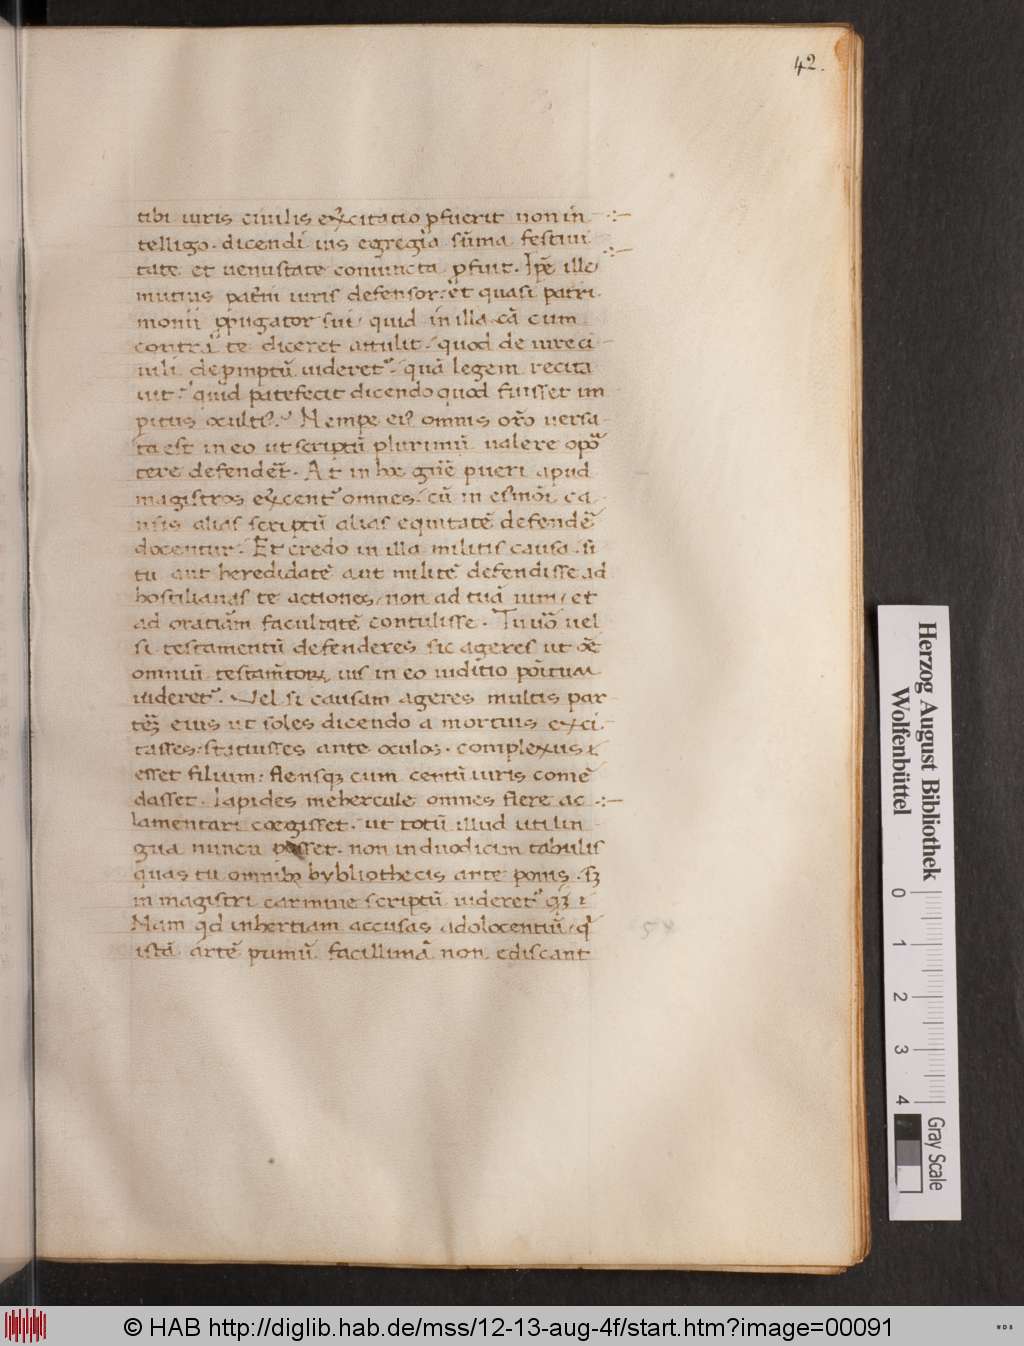 42.
tibi iuris ciuilis exercitatio ꝓfuerit non in
telligo. dicendi uis egregia sũma festiui
tate et uenustate coniuncta ꝓfuit. Ipẽ ille
mutius pat̃ni iuris defensor: et quasi patri
monii ꝓpugator sui/ quid in illa cã cum
contra te diceret attulit/ quod de iure ci
uili depinptũ uideret᷑/ quã legem recita
uit/ quid patefecit dicendo quod fuisset im
pitus ocultĩ? Nempe eiꝰ omnis orõ uersa
ta est in eo ut scriptũ plurimũ ualere opõ
tere defendet̃. At in hoc gñe pueri apud
magistros exercent᷑ omnes/ cũ in
alias scriptũ alias equitatẽ defendẽ
docentur. Et credo in illa militis causa. si
tu aut heredidatẽ aut militẽ defendisse ad
hostilianas te actiones/ non ad tuã uim/ et
ad oratiam facultatẽ contulisse. Tu uõ uel
si testamentũ defenderes sic ageres ut oẽ
omniũ testam̃torꝝ ius in eo iuditio põitum
uideret᷑. Vel si causam ageres multis par
teʒ eius ut soles dicendo a mortuis exci
tasses: statuisses ante oculos. complexus ĩ
esset filium: flensqʒ cum centũ uiris comẽ
dasset. lapides mehercule omnes flere ac
lamentari coegisset. ut totũ illud uti lin
gua nuncu posset. non in duodicim tabulis
quas tu omnibꝫ bybliothecis ante ponis. sʒ
in magistri carmine scriptũ uideret᷑
Nam qd inhertiam accusas adolocentiũ/
istã artẽ pumũ facillimã non ediscant
54
Herzog August Bibliothek
Wolfenbüttel
0 1 2 3 4
Gray Scale
© HAB http://diglib.hab.de/mss/12-13-aug-4f/start.htm?image=00091